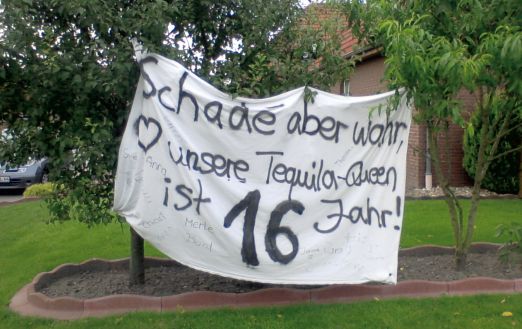 Schade aber wahr,
♡ unsere Tequila-Queen
ist 16 Jahr!
Merle